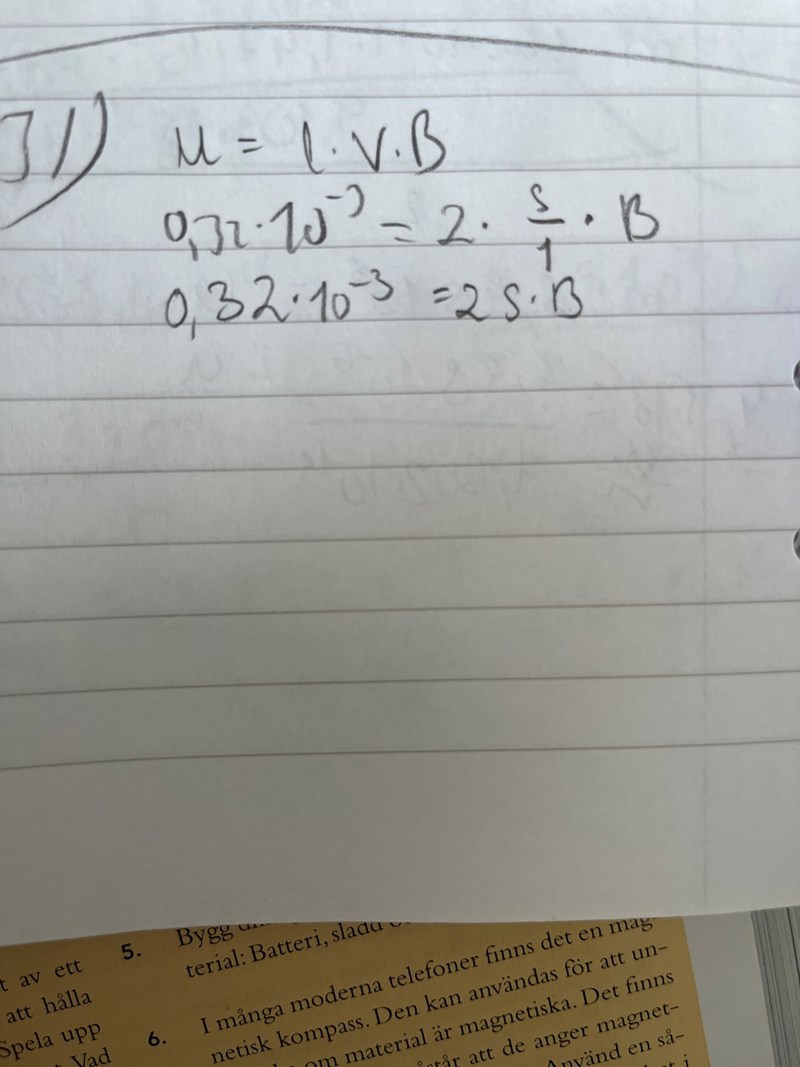 31) U = l · v · B
0,32 · 10⁻³ = 2 · s/1 · B
0,32 · 10⁻³ = 2 s · B
t av ett
att hålla
Spela upp
Vad
5. Bygg
terial: Batteri, sladd
6. I många moderna telefoner finns det en mag-
netisk kompass. Den kan användas för att un-
om material är magnetiska. Det finns
att de anger magnet-
Använd en så-